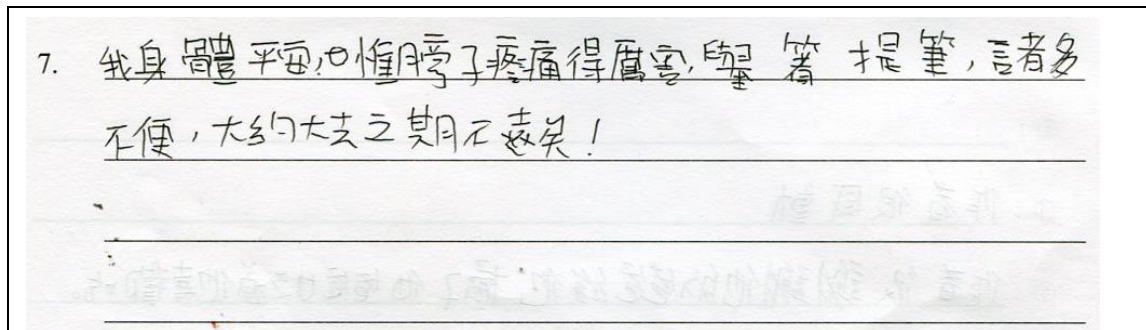 7. 我身體平安，惟膀子疼痛得厲害，舉箸提筆，諸多
不便，大約大去之期不遠矣！